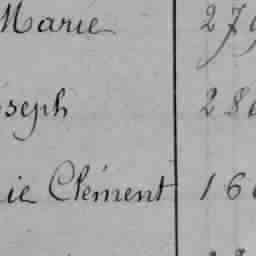 Marie 279
oseph 280
ie Clément 160